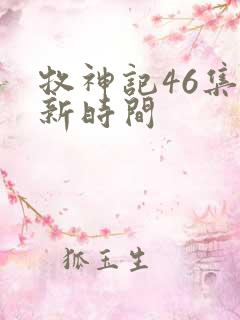 牧神記46集
新時間
狐玉生